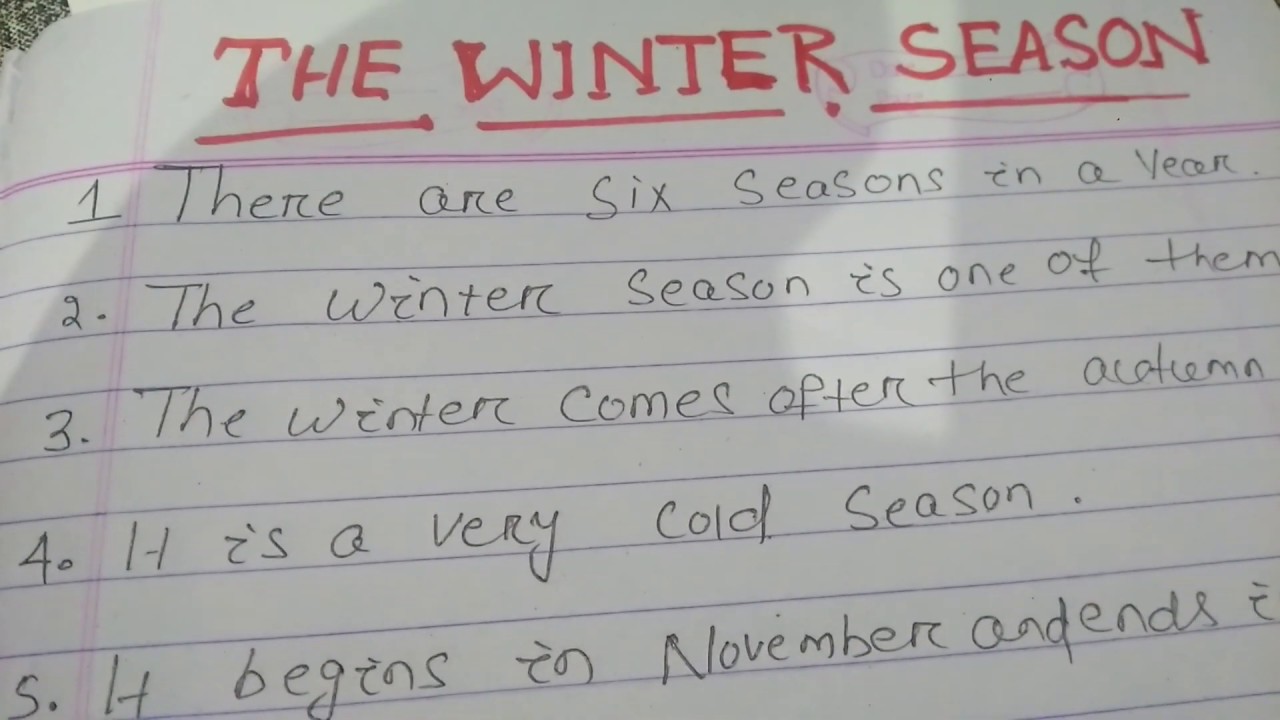 THE WINTER SEASON
1 There are Six Seasons in a Year.
2. The Winter Season is one of them
3. The Winter Comes after the acotumn
4. It is a very Cold Season.
5. It begins in November and ends i